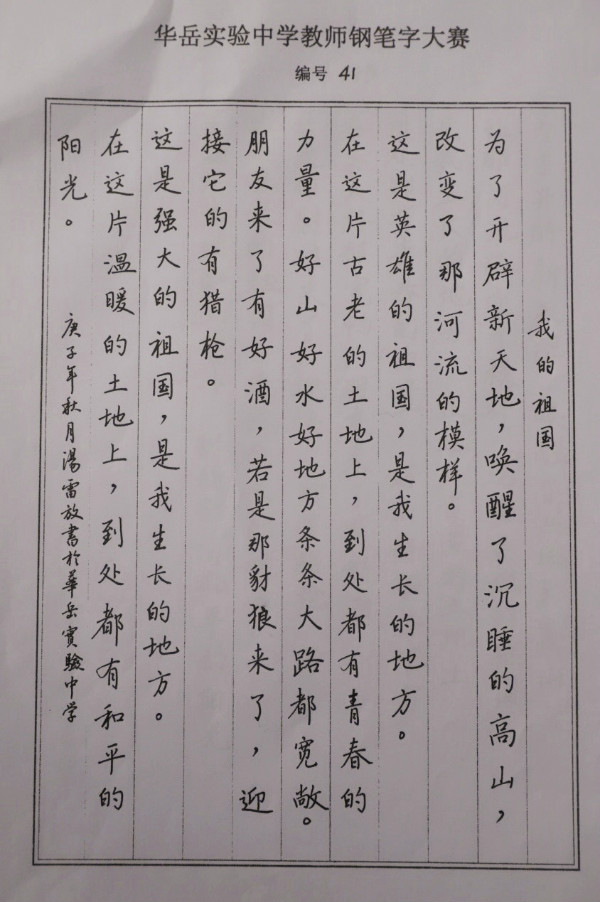 华岳实验中学教师钢笔字大赛
编号 41
我的祖国
为了开辟新天地，唤醒了沉睡的高山，
改变了那河流的模样。
这是英雄的祖国，是我生长的地方。
在这片古老的土地上，到处都有青春的
力量。好山好水好地方条条大路都宽敞。
朋友来了有好酒，若是那豺狼来了，迎
接它的有猎枪。
这是强大的祖国，是我生长的地方。
在这片温暖的土地上，到处都有和平的
阳光。
庚子年秋月湯雷放書於華岳實驗中学